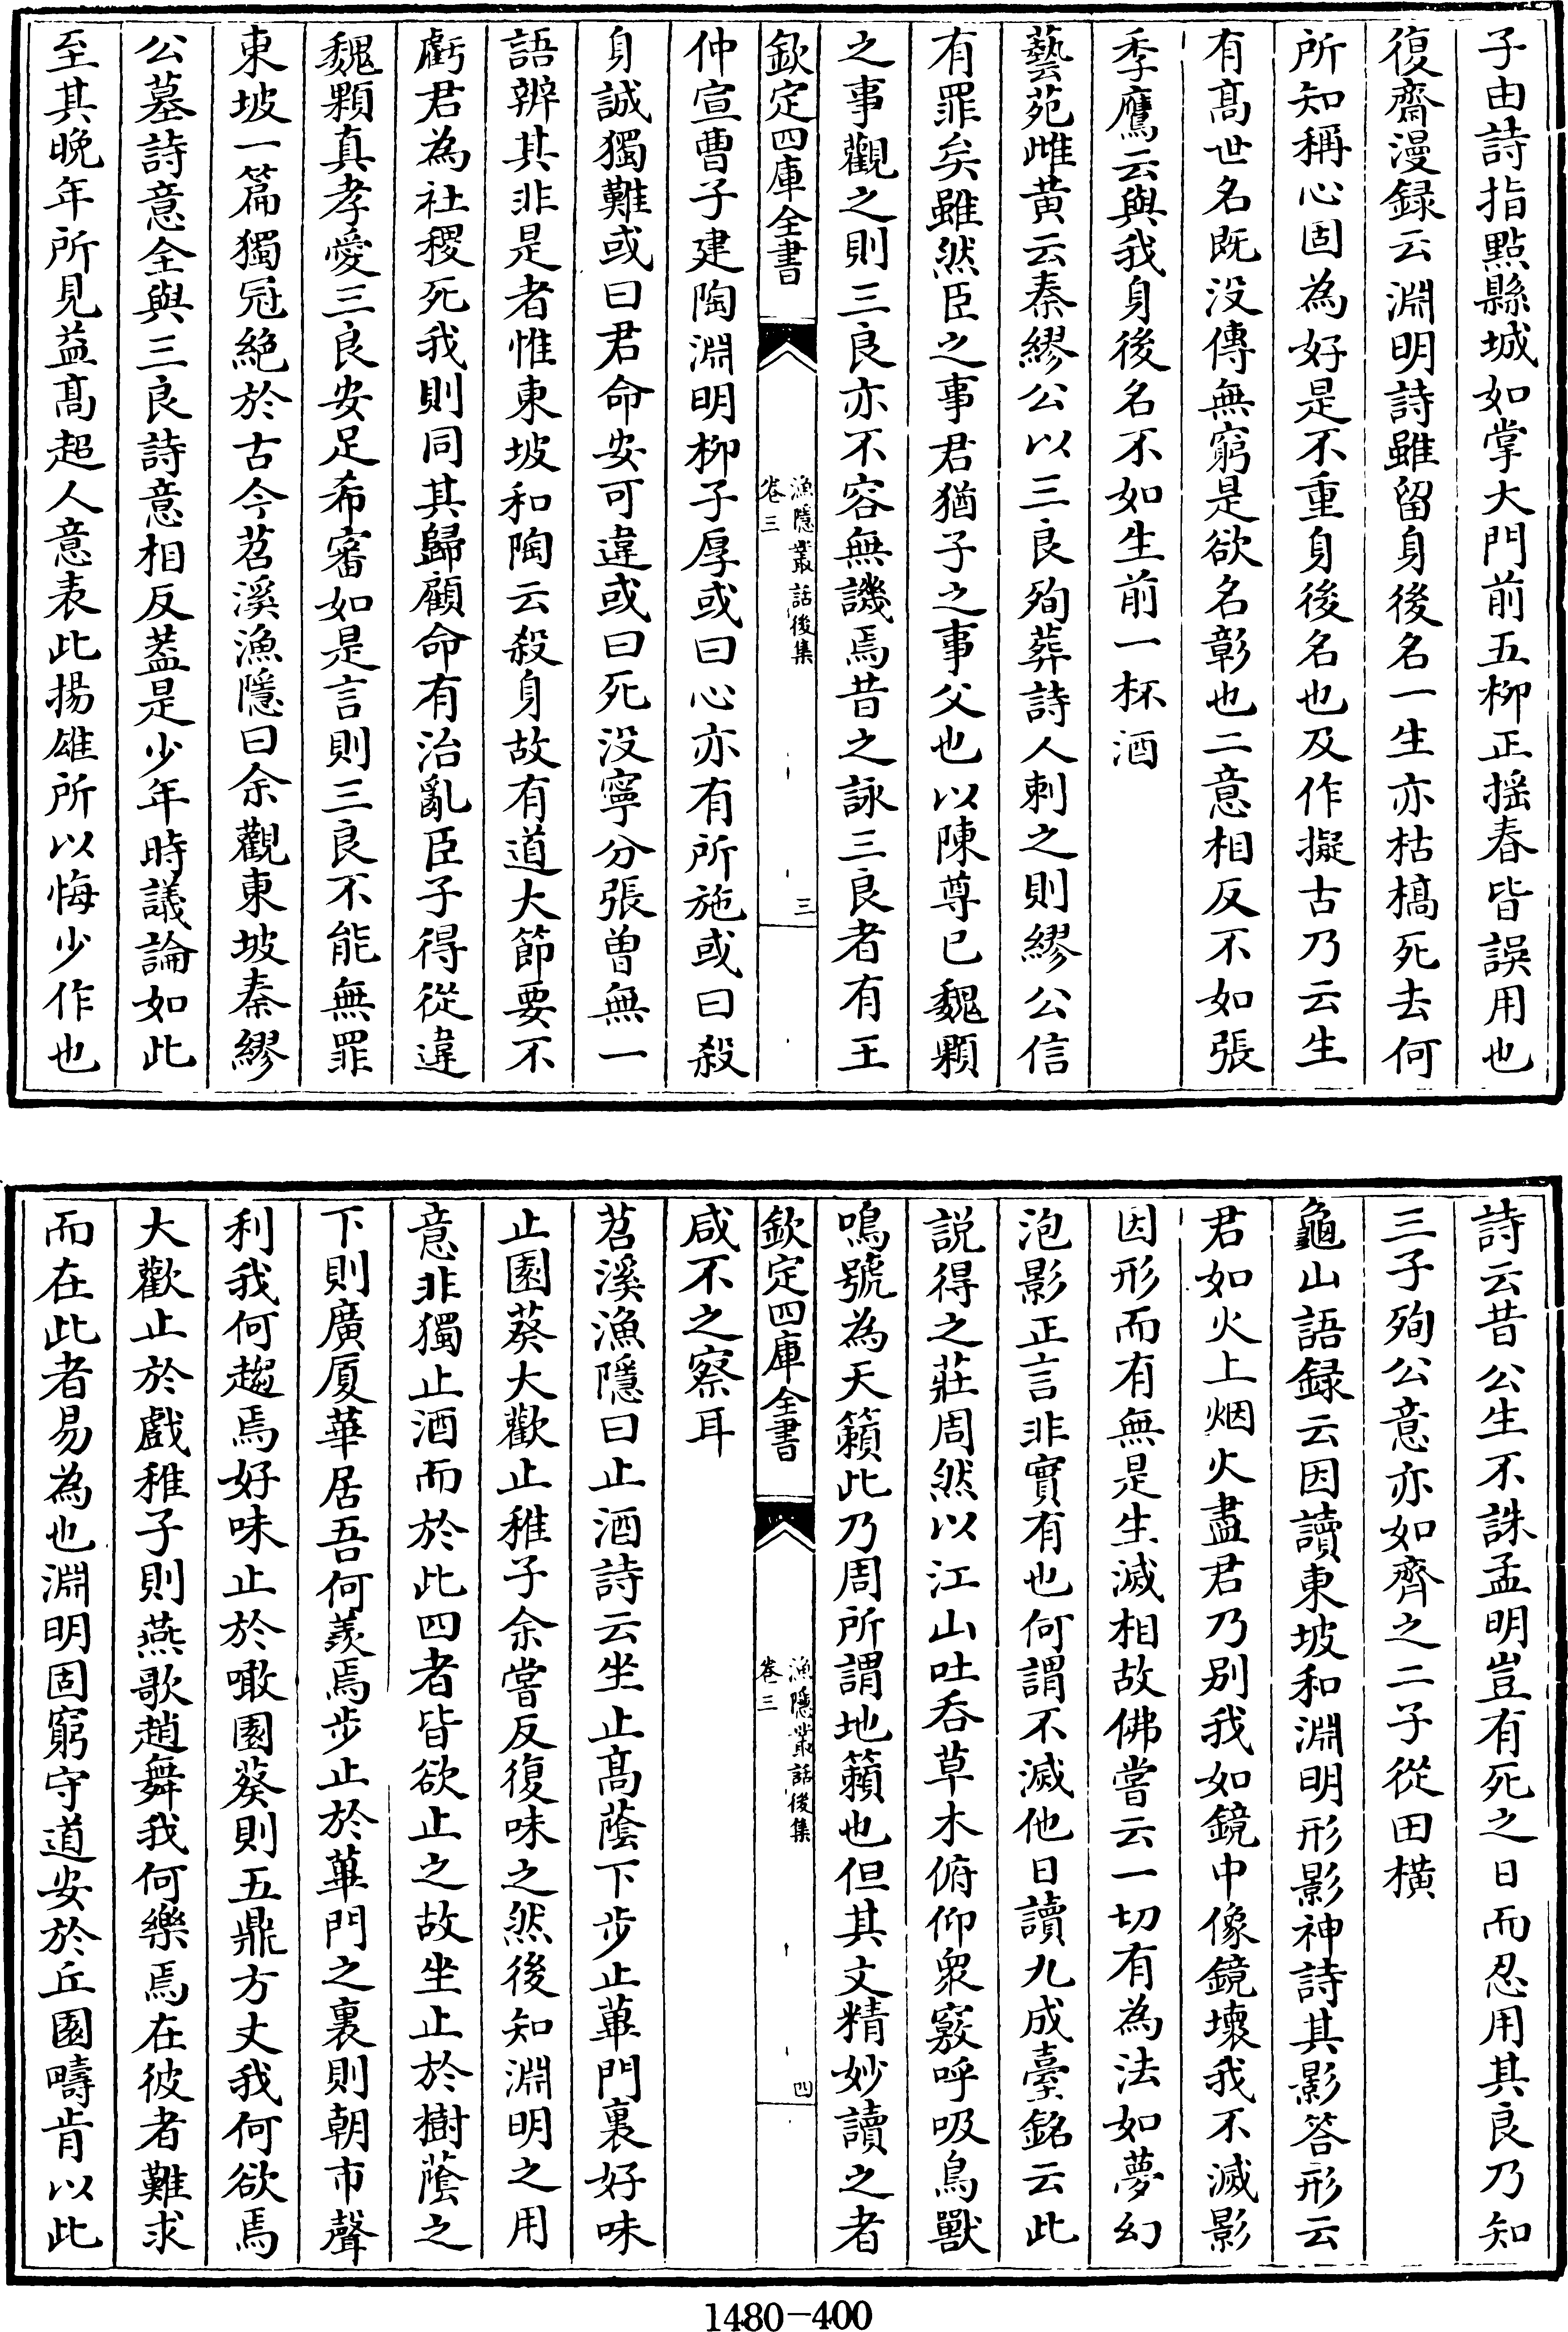 子由詩指點縣城如掌大門前五柳正揺春皆誤用也
復齋漫録云淵明詩雖留身後名一生亦枯槁死去何
所知稱心固為好是不重身後名也及作擬古乃云生
有髙世名既没傳無窮是欲名彰也二意相反不如張
季鷹云與我身後名不如生前一杯酒
藝苑雌黄云秦繆公以三良殉葬詩人刺之則繆公信
有罪矣雖然臣之事君猶子之事父也以陳尊已魏顆
之事觀之則三良亦不容無譏焉昔之詠三良者有王
欽定四庫全書
漁隱叢話後集
卷三
三
仲宣曹子建陶淵明柳子厚或曰心亦有所施或曰殺
身誠獨難或曰君命安可違或曰死没寧分張曽無一
語辨其非是者惟東坡和陶云殺身故有道大節要不
虧君為社稷死我則同其歸顧命有治亂臣子得從違
魏顆真孝愛三良安足希審如是言則三良不能無罪
東坡一篇獨冠絶於古今苕溪漁隱曰余觀東坡秦繆
公墓詩意全與三良詩意相反葢是少年時議論如此
至其晚年所見益髙超人意表此揚雄所以悔少作也
詩云昔公生不誅孟明豈有死之日而忍用其良乃知
三子殉公意亦如齊之二子從田橫
龜山語録云因讀東坡和淵明形影神詩其影答形云
君如火上烟火盡君乃别我如鏡中像鏡壊我不滅影
因形而有無是生滅相故佛嘗云一切有為法如夢幻
泡影正言非實有也何謂不滅他日讀九成臺銘云此
説得之莊周然以江山吐吞草木俯仰衆竅呼吸鳥獸
鳴號為天籟此乃周所謂地籟也但其文精妙讀之者
欽定四庫全書
漁隱叢話後集
卷三
四
咸不之察耳
苕溪漁隱曰止酒詩云坐止髙蔭下步止蓽門裏好味
止園葵大歡止稚子余嘗反復味之然後知淵明之用
意非獨止酒而於此四者皆欲止之故坐止於樹蔭之
下則廣厦華居吾何羨焉步止於蓽門之裏則朝市聲
利我何趨焉好味止於噉園葵則五鼎方丈我何欲焉
大歡止於戲稚子則燕歌趙舞我何樂焉在彼者難求
而在此者易為也淵明固窮守道安於丘園疇肯以此
1480-400